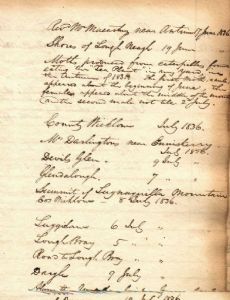 near Antrim 17 June 1836
Shores of Lough Neagh 19 June
Moths produced from caterpillars found
in any
the Autumn of 1835 the first made
appears about the beginning of June the
females appears about the middle of the month
and the second male not till 2 July
County Wicklow July 1836.
Mr Darlingtons near Enniskerry
July 1836.
Devils Glen 9 July
Glendalough 7 "
Summit of Lugnaquillia Mountain
Co Wicklow 8 July 1836.
Luggelaw 6 July "
Lough Bray 5 " "
Road to Lough Bray " "
Dargle 9 July